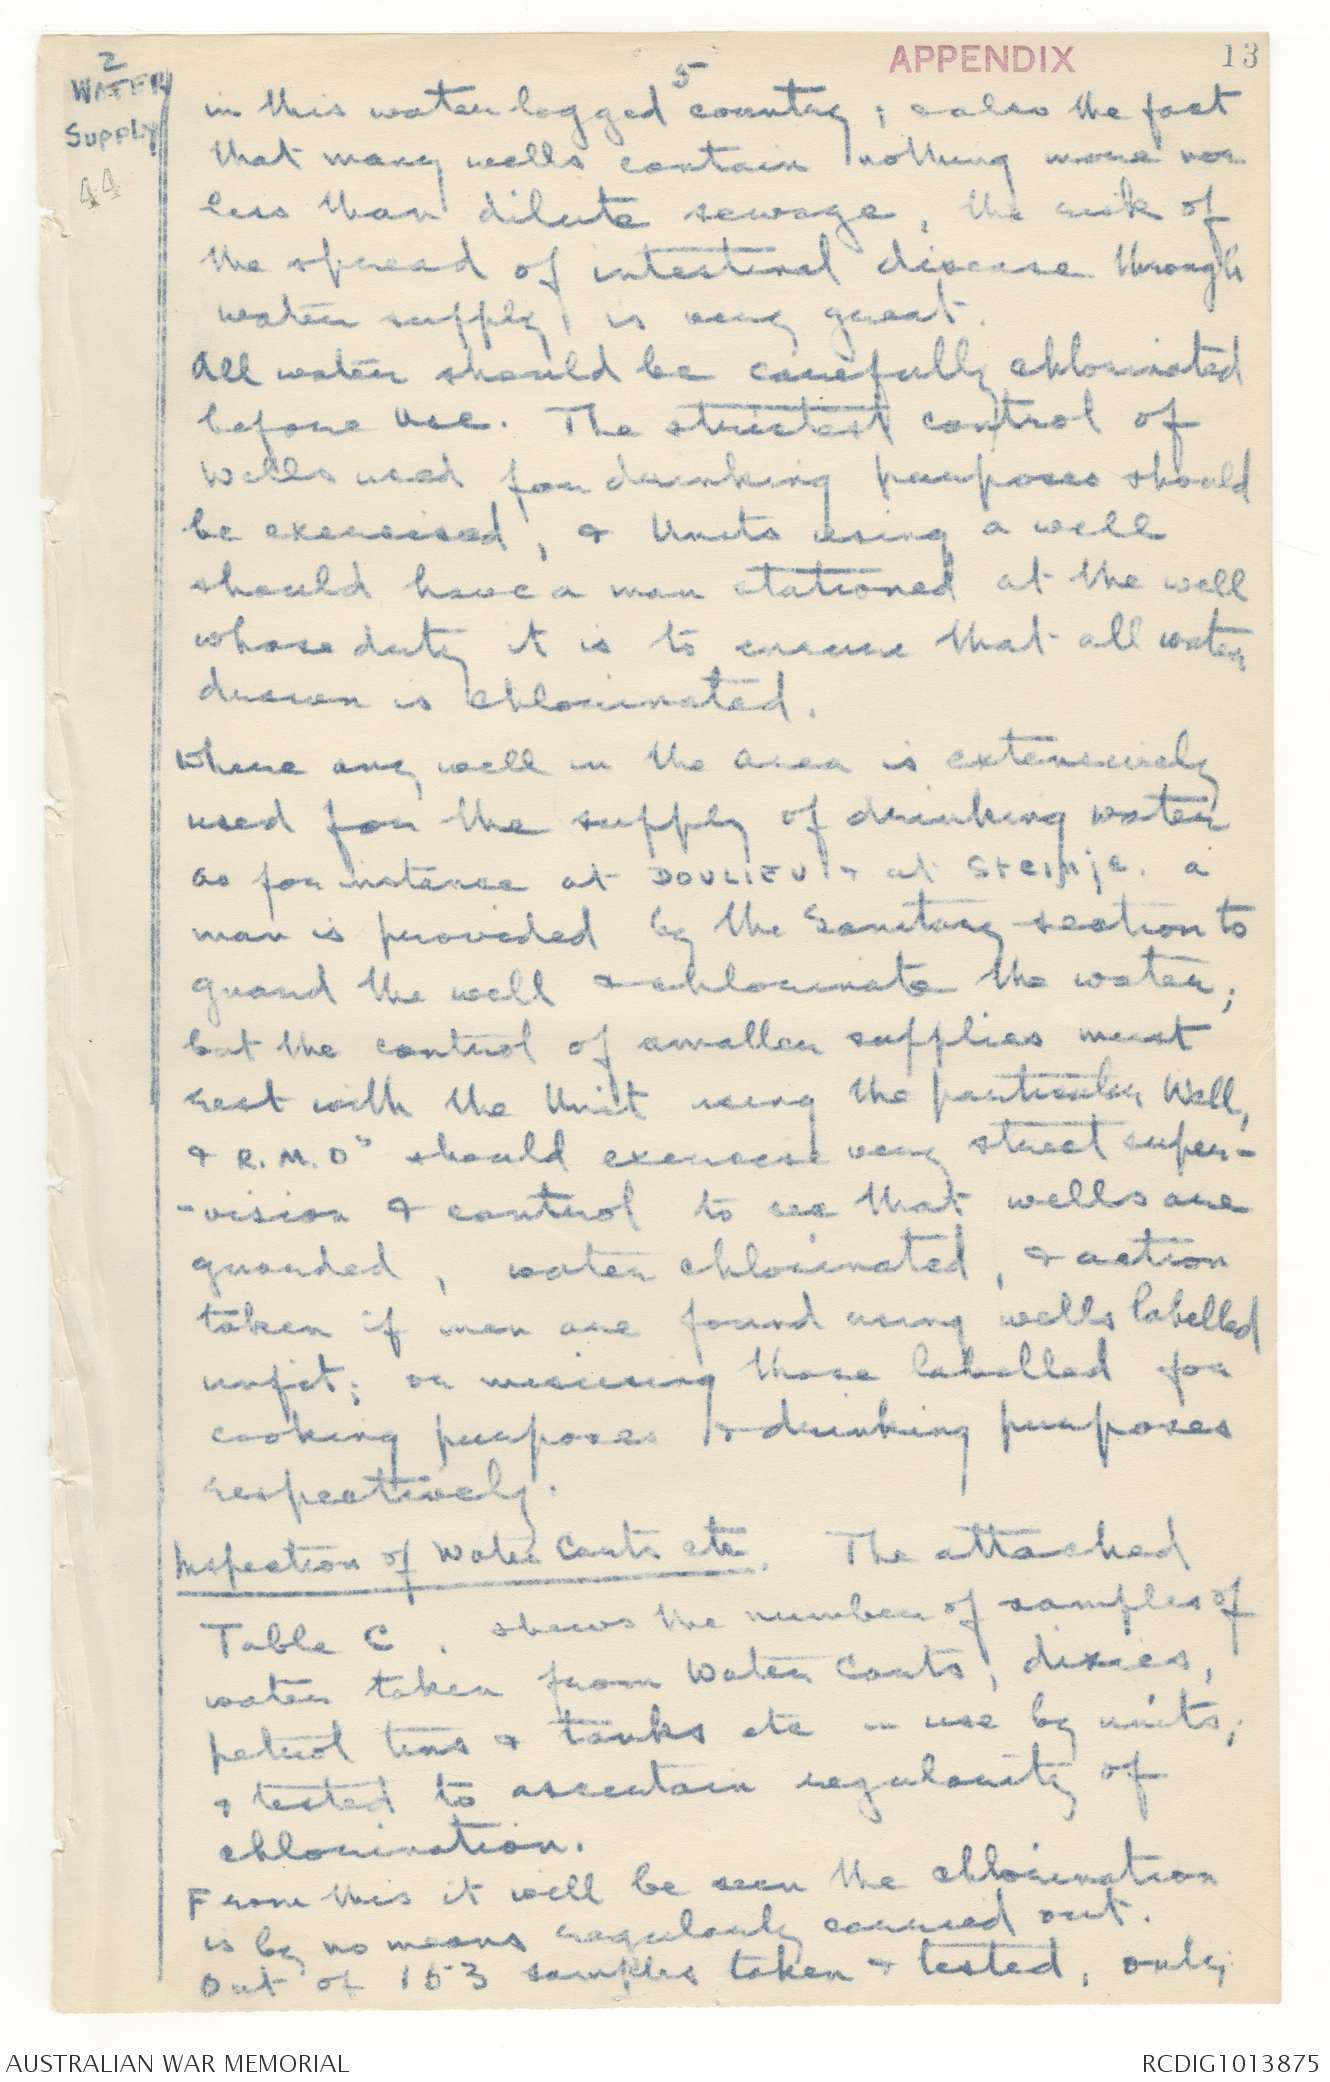 APPENDIX 13
5
2
WATER
Supply
44
in this water logged country; & also the fact
that many wells contain nothing more nor
less than dilute sewage, the risk of
the spread of intestinal disease through
water supply is very great.
All water should be carefully chlorinated
before use. The strictest control of
wells used for drinking purposes should
be exercised, & Units using a well
should have a man stationed at the well
whose duty it is to ensure that all water
drawn is chlorinated.
Where any well in the area is extensively
used for the supply of drinking water
as for instance at DOULIEU & at Steinje. a
man is provided by the Sanitary section to
guard the well & chlorinate the water;
but the control of smaller supplies must
rest with the Unit using the particular Well,
& R.M.Os should exercise very strict super-
-vision & control to see that wells are
guarded, water chlorinated, & action
taken if men are found using wells labelled
unfit; or misusing those labelled for
cooking purposes & drinking purposes
respectively.
Inspection of Water Carts etc. The attached
Table C. shews the number of samples of
water taken from Water Carts, dixies,
petrol tins & tanks etc in use by units;
& tested to ascertain regularity of
chlorination.
From this it will be seen the chlorination
is by no means regularly carried out.
Out of 153 samples taken & tested, only
AUSTRALIAN WAR MEMORIAL
RCDIG1013875